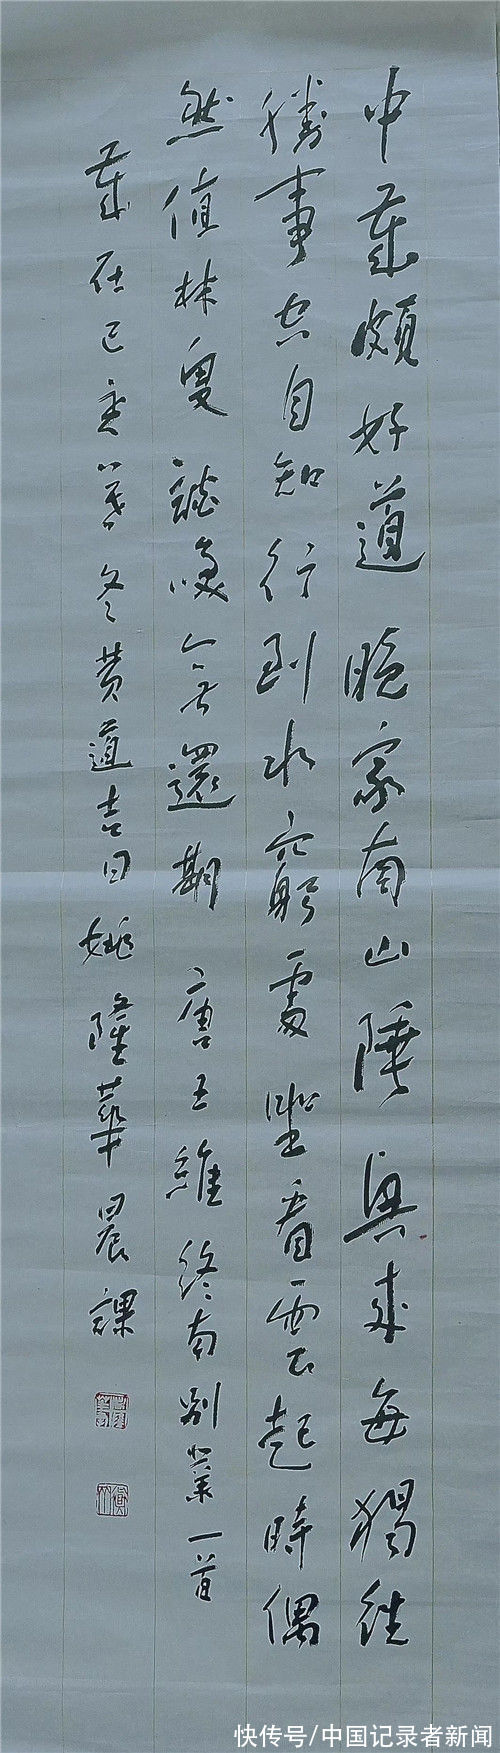 中歲頗好道晚家南山陲興來每獨往
勝事空自知行到水窮處坐看雲起時偶
然值林叟談咲無還期 唐王維終南別業一首
歲在己亥冬黃道吉日姚隆華晨課
快传号/中国记录者新闻